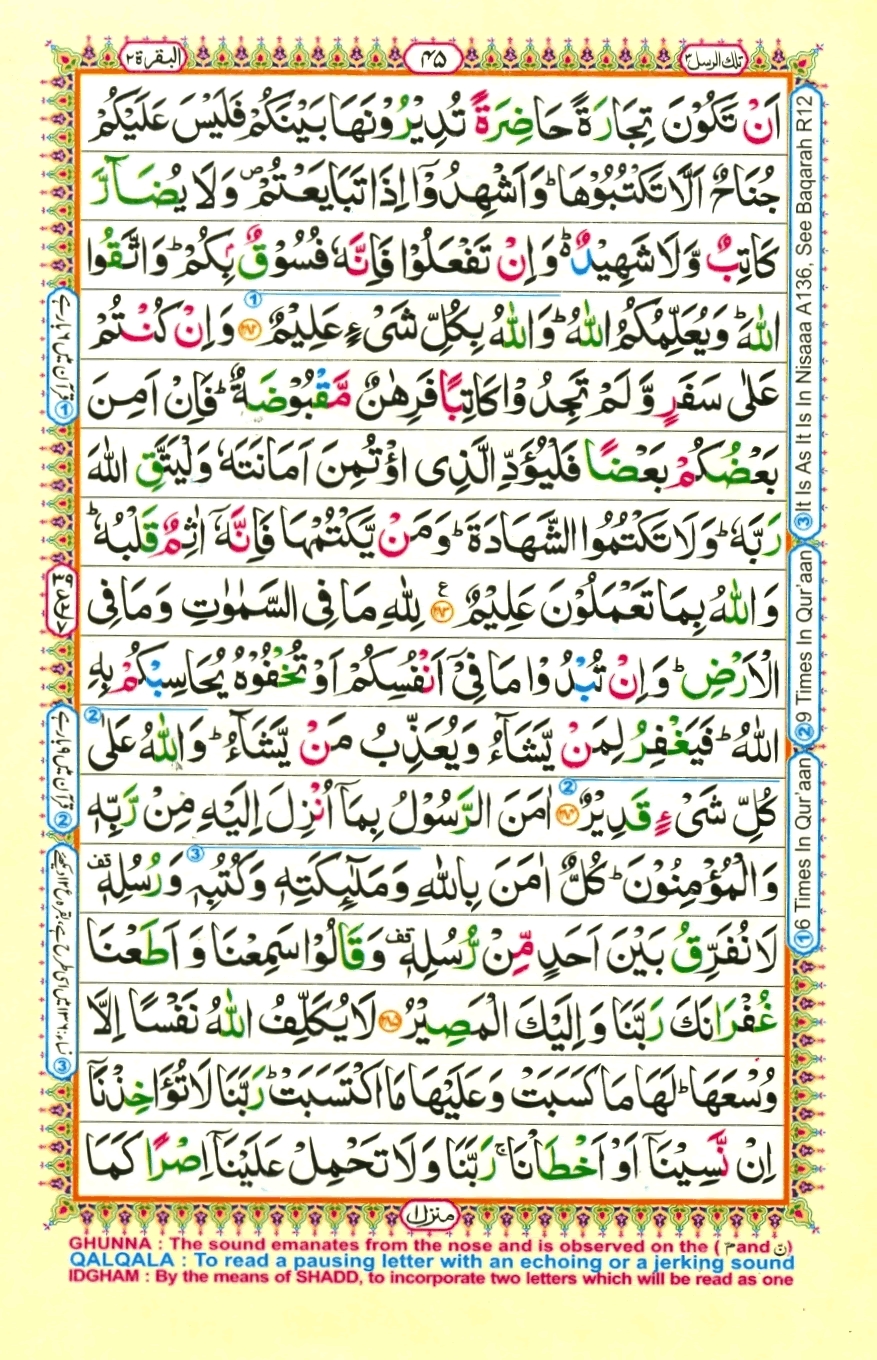 تلك الرسل ۳
۴۵
البقرة ۲
اَنْ تَكُوْنَ تِجَارَةً حَاضِرَةً تُدِيْرُوْنَهَا بَيْنَكُمْ فَلَيْسَ عَلَيْكُمْ
جُنَاحٌ اَلَّا تَكْتُبُوْهَا ؕ وَاَشْهِدُوْۤا اِذَا تَبَايَعْتُمْ ۪ وَلَا يُضَآرَّ
كَاتِبٌ وَّلَا شَهِيْدٌ ؕ۬ وَاِنْ تَفْعَلُوْا فَاِنَّهٗ فُسُوْقٌۢ بِكُمْ ؕ وَاتَّقُوا
اللّٰهَ ؕ وَيُعَلِّمُكُمُ اللّٰهُ ؕ وَاللّٰهُ بِكُلِّ شَیْءٍ عَلِيْمٌ ﴿۲۸۲﴾ وَاِنْ كُنْتُمْ
عَلٰى سَفَرٍ وَّلَمْ تَجِدُوْا كَاتِبًا فَرِهٰنٌ مَّقْبُوْضَةٌ ؕ فَاِنْ اَمِنَ
بَعْضُكُمْ بَعْضًا فَلْيُؤَدِّ الَّذِی اؤْتُمِنَ اَمَانَتَهٗ وَلْيَتَّقِ اللّٰهَ
رَبَّهٗ ؕ وَلَا تَكْتُمُوا الشَّهَادَةَ ؕ وَمَنْ يَّكْتُمْهَا فَاِنَّهٗۤ اٰثِمٌ قَلْبُهٗ ؕ
وَاللّٰهُ بِمَا تَعْمَلُوْنَ عَلِيْمٌ ﴿۲۸۳﴾ ع لِلّٰهِ مَا فِی السَّمٰوٰتِ وَمَا فِی
الْاَرْضِ ؕ وَاِنْ تُبْدُوْا مَا فِیْۤ اَنْفُسِكُمْ اَوْ تُخْفُوْهُ يُحَاسِبْكُمْ بِهِ
اللّٰهُ ؕ فَيَغْفِرُ لِمَنْ يَّشَآءُ وَيُعَذِّبُ مَنْ يَّشَآءُ ؕ وَاللّٰهُ عَلٰى
كُلِّ شَیْءٍ قَدِيْرٌ ﴿۲۸۴﴾ اٰمَنَ الرَّسُوْلُ بِمَاۤ اُنْزِلَ اِلَيْهِ مِنْ رَّبِّهٖ
وَالْمُؤْمِنُوْنَ ؕ كُلٌّ اٰمَنَ بِاللّٰهِ وَمَلٰٓئِكَتِهٖ وَكُتُبِهٖ وَرُسُلِهٖ قف
لَا نُفَرِّقُ بَيْنَ اَحَدٍ مِّنْ رُّسُلِهٖ قف وَقَالُوْا سَمِعْنَا وَاَطَعْنَا
غُفْرَانَكَ رَبَّنَا وَاِلَيْكَ الْمَصِيْرُ ﴿۲۸۵﴾ لَا يُكَلِّفُ اللّٰهُ نَفْسًا اِلَّا
وُسْعَهَا ؕ لَهَا مَا كَسَبَتْ وَعَلَيْهَا مَا اكْتَسَبَتْ ؕ رَبَّنَا لَا تُؤَاخِذْنَاۤ
اِنْ نَّسِيْنَاۤ اَوْ اَخْطَاْنَا ۚ رَبَّنَا وَلَا تَحْمِلْ عَلَيْنَاۤ اِصْرًا كَمَا
③ It Is As It Is In Nisaaa A136, See Baqarah R12
② 9 Times In Qur'aan
① 6 Times In Qur'aan
① قرآن میں ۶ بار ہے
② قرآن میں ۹ بار ہے
منزل ۱
GHUNNA : The sound emanates from the nose and is observed on the ( م and ن)
QALQALA : To read a pausing letter with an echoing or a jerking sound
IDGHAM : By the means of SHADD, to incorporate two letters which will be read as one